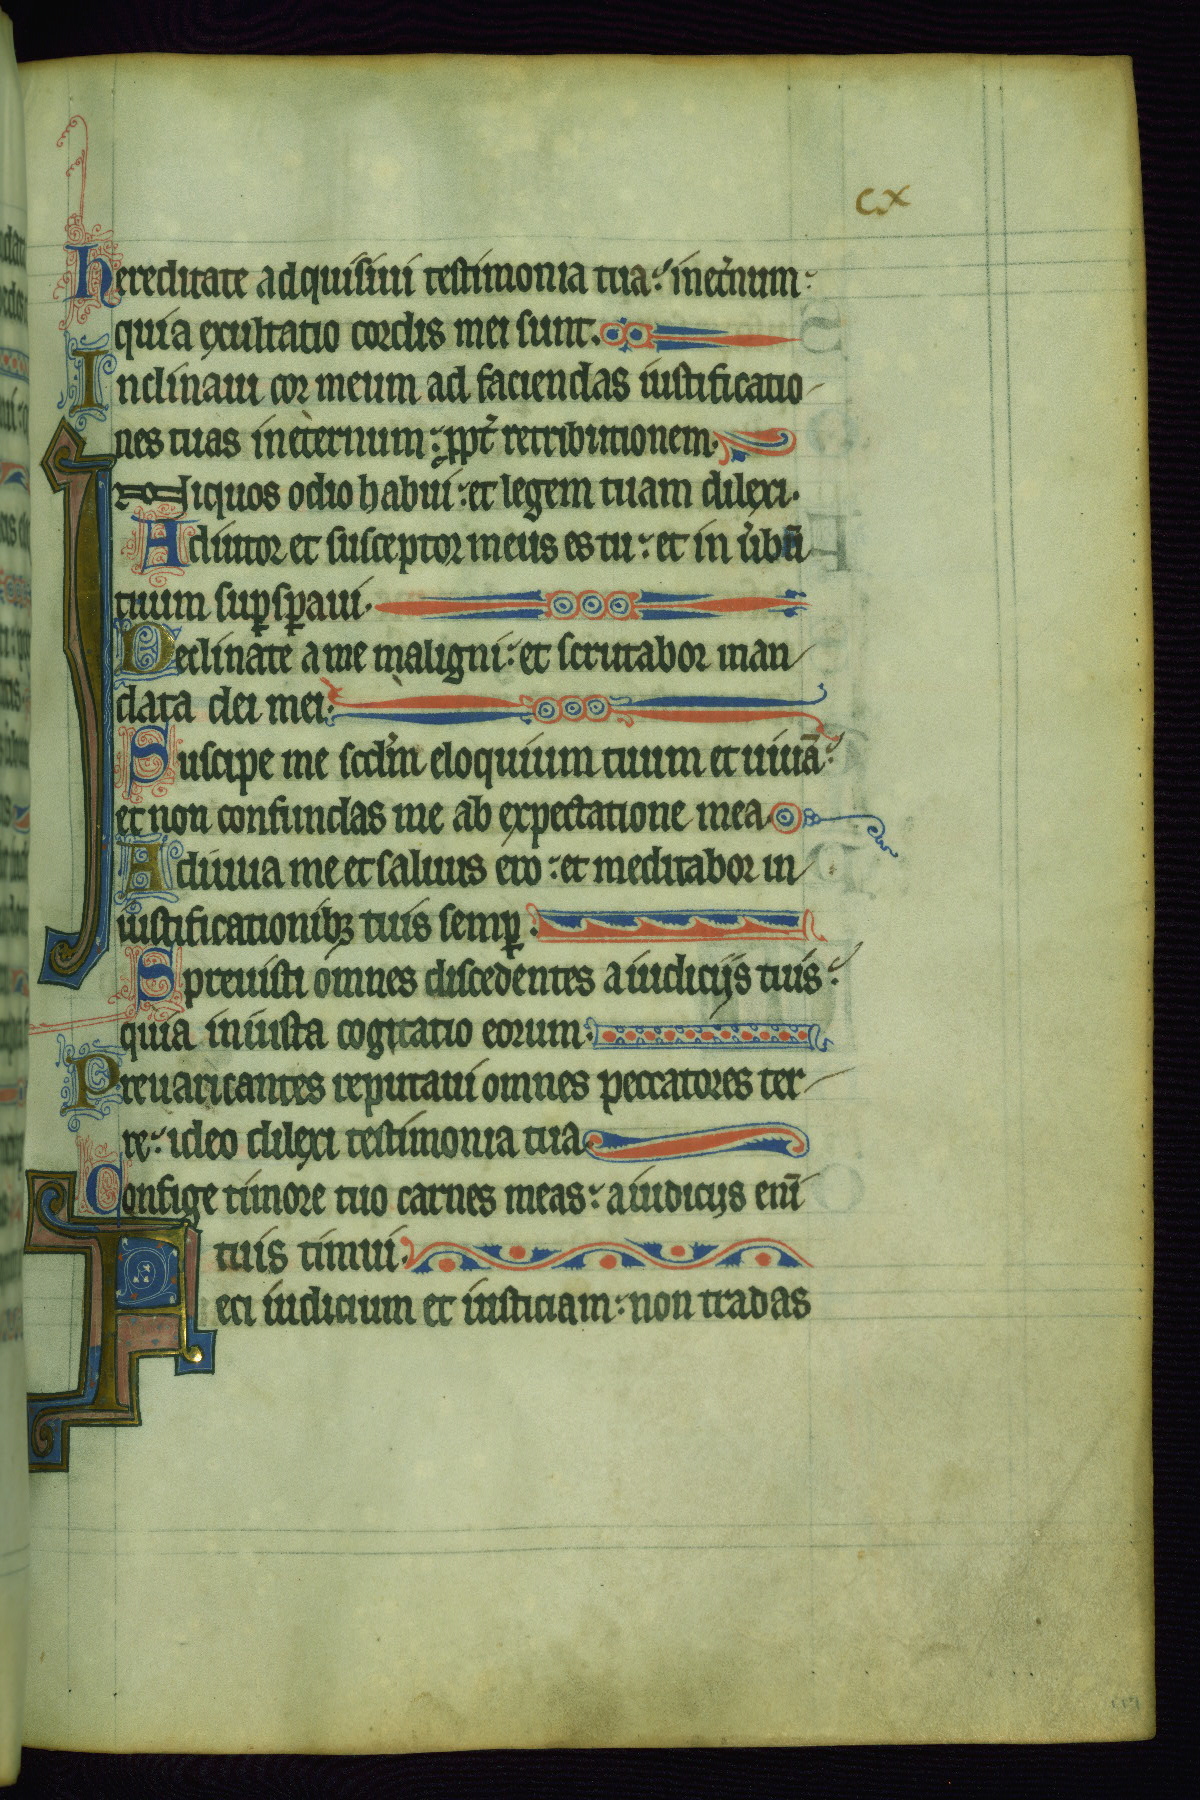 cx
Hereditate adquisiui testimonia tua: inet̉num:
quia exultatio cordis mei sunt.
Inclinaui cor meum ad faciendas iustificatio
nes tuas ineternum: ꝓpt̉ retributionem.
Iniquos odio habui: et legem tuam dilexi.
Adiutor et susceptor meus es tu: et in u̾bū
tuum suꝑsꝑaui.
Declinate a me maligni: et scrutabor man
data dei mei.
Suscipe me scd̾m eloquium tuum et uiuā:
et non confundas me ab expectatione mea
Adiuua me et saluus ero: et meditabor in
iustificationibꝫ tuis semꝑ.
Spreuisti omnes discedentes a iudicijs tuis:
quia iniusta cogitatio eorum.
Preuaricantes reputaui omnes peccatores ter
re: ideo dilexi testimonia tua
Confige timore tuo carnes meas: a iudicijs eni̅
tuis timui.
Feci iudicium et iusticiam: non tradas